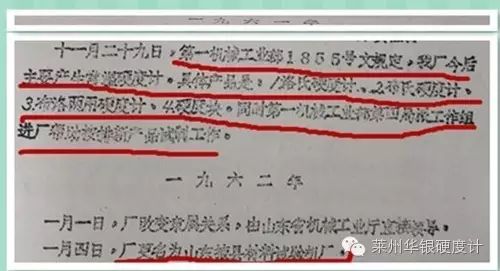 一九六一年
十一月二十九日，第一机械工业部1855号文规定，我厂今后
主要产生普通硬度计。具体产品是：1洛氏硬度计、2.布氏硬度计、
3.布洛两用硬度计、4.硬度块。同时第一机械工业部第四局派工作组
进厂帮助安排新产品试制工作。
一九六二年
一月一日，厂改变隶属关系，由山东省机械工业厅直接领导。
一月四日，厂更名为山东掖县材料试验机厂。
莱州华银硬度计